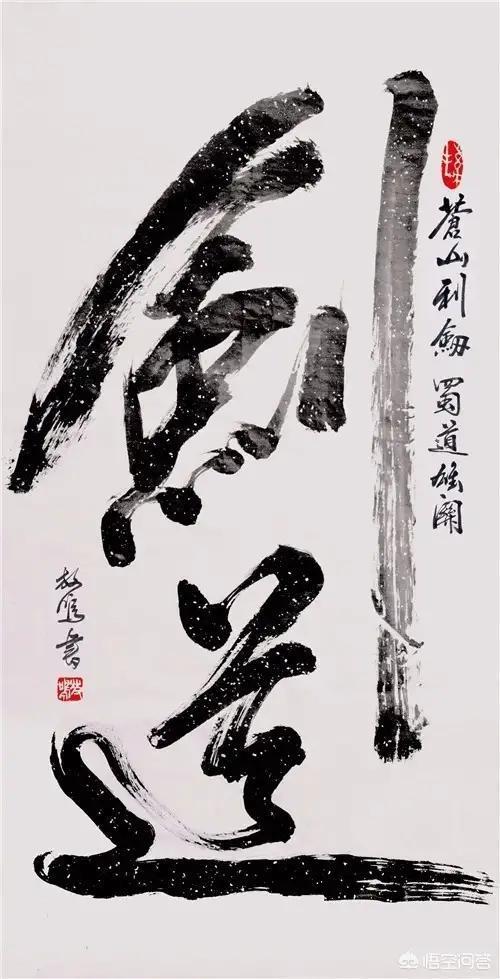 劍道
蒼山利劍 蜀道雄關
書
悟空问答